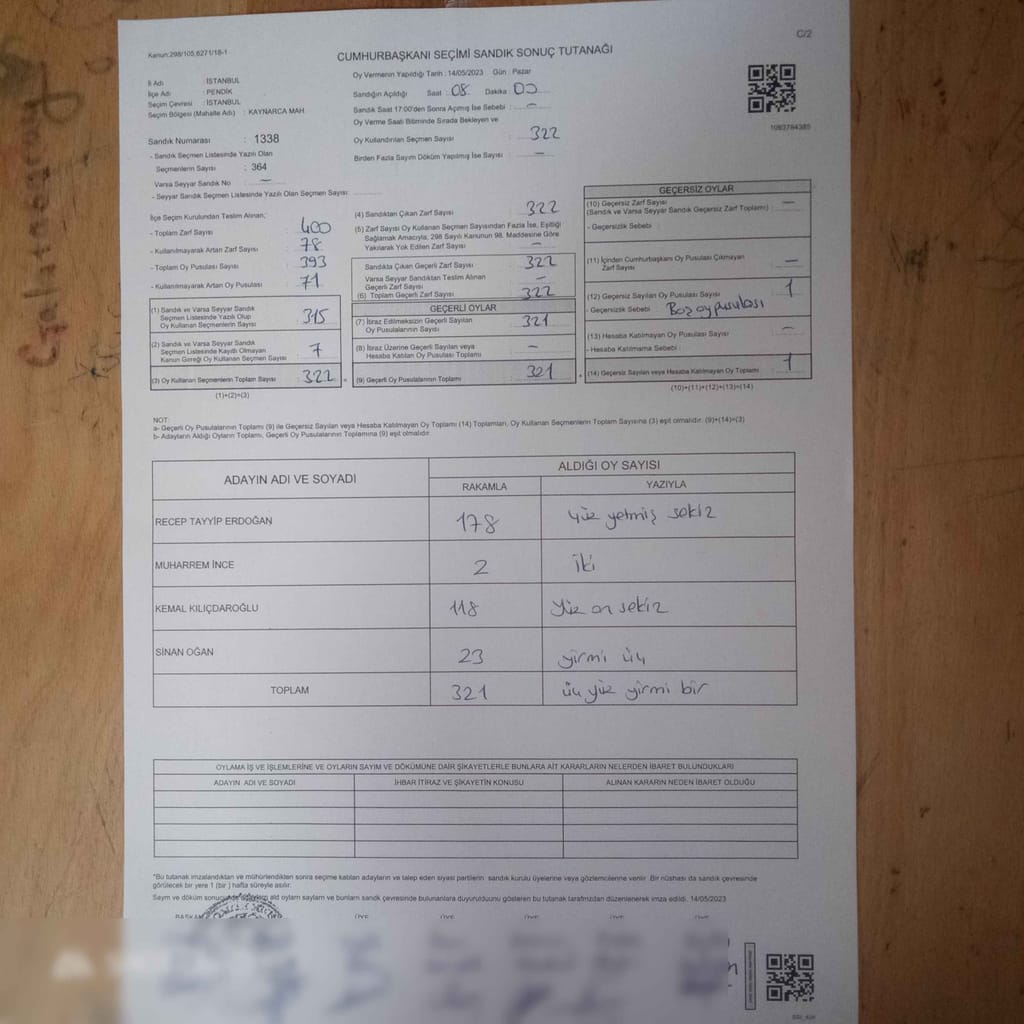 C/2
Kanun:298/105,6271/18-1
CUMHURBAŞKANI SEÇİMİ SANDIK SONUÇ TUTANAĞI
İl Adı : İSTANBUL
İlçe Adı : PENDİK
Seçim Çevresi : İSTANBUL
Seçim Bölgesi (Mahalle Adı) : KAYNARCA MAH.
Sandık Numarası : 1338
- Sandık Seçmen Listesinde Yazılı Olan
Seçmenlerin Sayısı : 364
Varsa Seyyar Sandık No : —
- Seyyar Sandık Seçmen Listesinde Yazılı Olan Seçmen Sayısı:
Oy Vermenin Yapıldığı Tarih : 14/05/2023 Gün : Pazar
Sandığın Açıldığı Saat : 08 Dakika : 00
Sandık Saat 17:00'den Sonra Açılmış İse Sebebi : —
Oy Verme Saati Bitiminde Sırada Bekleyen ve
Oy Kullandırılan Seçmen Sayısı : 322
Birden Fazla Sayım Döküm Yapılmış İse Sayısı : —
1093784385
İlçe Seçim Kurulundan Teslim Alınan;
- Toplam Zarf Sayısı : 400
- Kullanılmayarak Artan Zarf Sayısı : 78
- Toplam Oy Pusulası Sayısı : 393
- Kullanılmayarak Artan Oy Pusulası : 71
(1) Sandık ve Varsa Seyyar Sandık
Seçmen Listesinde Yazılı Olup
Oy Kullanan Seçmenlerin Sayısı : 315
(2) Sandık ve Varsa Seyyar Sandık
Seçmen Listesinde Kayıtlı Olmayan
Kanun Gereği Oy Kullanan Seçmen Sayısı : 7
(3) Oy Kullanan Seçmenlerin Toplam Sayısı : 322
(1)+(2)=(3)
(4) Sandıktan Çıkan Zarf Sayısı : 322
(5) Zarf Sayısı Oy Kullanan Seçmen Sayısından Fazla İse, Eşitliği
Sağlamak Amacıyla, 298 Sayılı Kanunun 98. Maddesine Göre
Yakılarak Yok Edilen Zarf Sayısı : —
Sandıkta Çıkan Geçerli Zarf Sayısı : 322
Varsa Seyyar Sandıktan Teslim Alınan
Geçerli Zarf Sayısı : —
(6) Toplam Geçerli Zarf Sayısı : 322
GEÇERLİ OYLAR
(7) İtiraz Edilmeksizin Geçerli Sayılan
Oy Pusulalarının Sayısı : 321
(8) İtiraz Üzerine Geçerli Sayılan veya
Hesaba Katılan Oy Pusulası Toplamı : —
(9) Geçerli Oy Pusulalarının Toplamı : 321
GEÇERSİZ OYLAR
(10) Geçersiz Zarf Sayısı : —
(Sandık ve Varsa Seyyar Sandık Geçersiz Zarf Toplamı)
- Geçersizlik Sebebi :
(11) İçinden Cumhurbaşkanı Oy Pusulası Çıkmayan
Zarf Sayısı : —
(12) Geçersiz Sayılan Oy Pusulası Sayısı : 1
- Geçersizlik Sebebi : Boz oy pusulası
(13) Hesaba Katılmayan Oy Pusulası Sayısı : —
- Hesaba Katılmama Sebebi :
(14) Geçersiz Sayılan veya Hesaba Katılmayan Oy Toplamı : 1
(10)+(11)+(12)+(13)=(14)
NOT:
a- Geçerli Oy Pusulalarının Toplamı (9) ile Geçersiz Sayılan veya Hesaba Katılmayan Oy Toplamı (14) Toplamları, Oy Kullanan Seçmenlerin Toplam Sayısına (3) eşit olmalıdır. (9)+(14)=(3)
b- Adayların Aldığı Oyların Toplamı, Geçerli Oy Pusulalarının Toplamına (9) eşit olmalıdır.
ADAYIN ADI VE SOYADI ALDIĞI OY SAYISI
RAKAMLA YAZIYLA
RECEP TAYYİP ERDOĞAN 178 yüz yetmiş sekiz
MUHARREM İNCE 2 iki
KEMAL KILIÇDAROĞLU 118 yüz on sekiz
SİNAN OĞAN 23 yirmi üç
TOPLAM 321 üç yüz yirmi bir
OYLAMA İŞ VE İŞLEMLERİNE VE OYLARIN SAYIM VE DÖKÜMÜNE DAİR ŞİKAYETLERLE BUNLARA AİT KARARLARIN NELERDEN İBARET BULUNDUKLARI
ADAYIN ADI VE SOYADI İHBAR İTİRAZ VE ŞİKAYETİN KONUSU ALINAN KARARIN NEDEN İBARET OLDUĞU
*Bu tutanak imzalandıktan ve mühürlendikten sonra seçime katılan adayların ve talep eden siyasi partilerin sandık kurulu üyelerine veya gözlemcilerine verilir. Bir nüshası da sandık çevresinde
görülecek bir yere 1 (bir ) hafta süreyle asılır.
Sayım ve döküm sonucunda adayların aldığı oyların sayısını ve bunların sandık çevresinde bulunanlara duyurulduğunu gösteren bu tutanak tarafımızdan düzenlenerek imza edildi. 14/05/2023